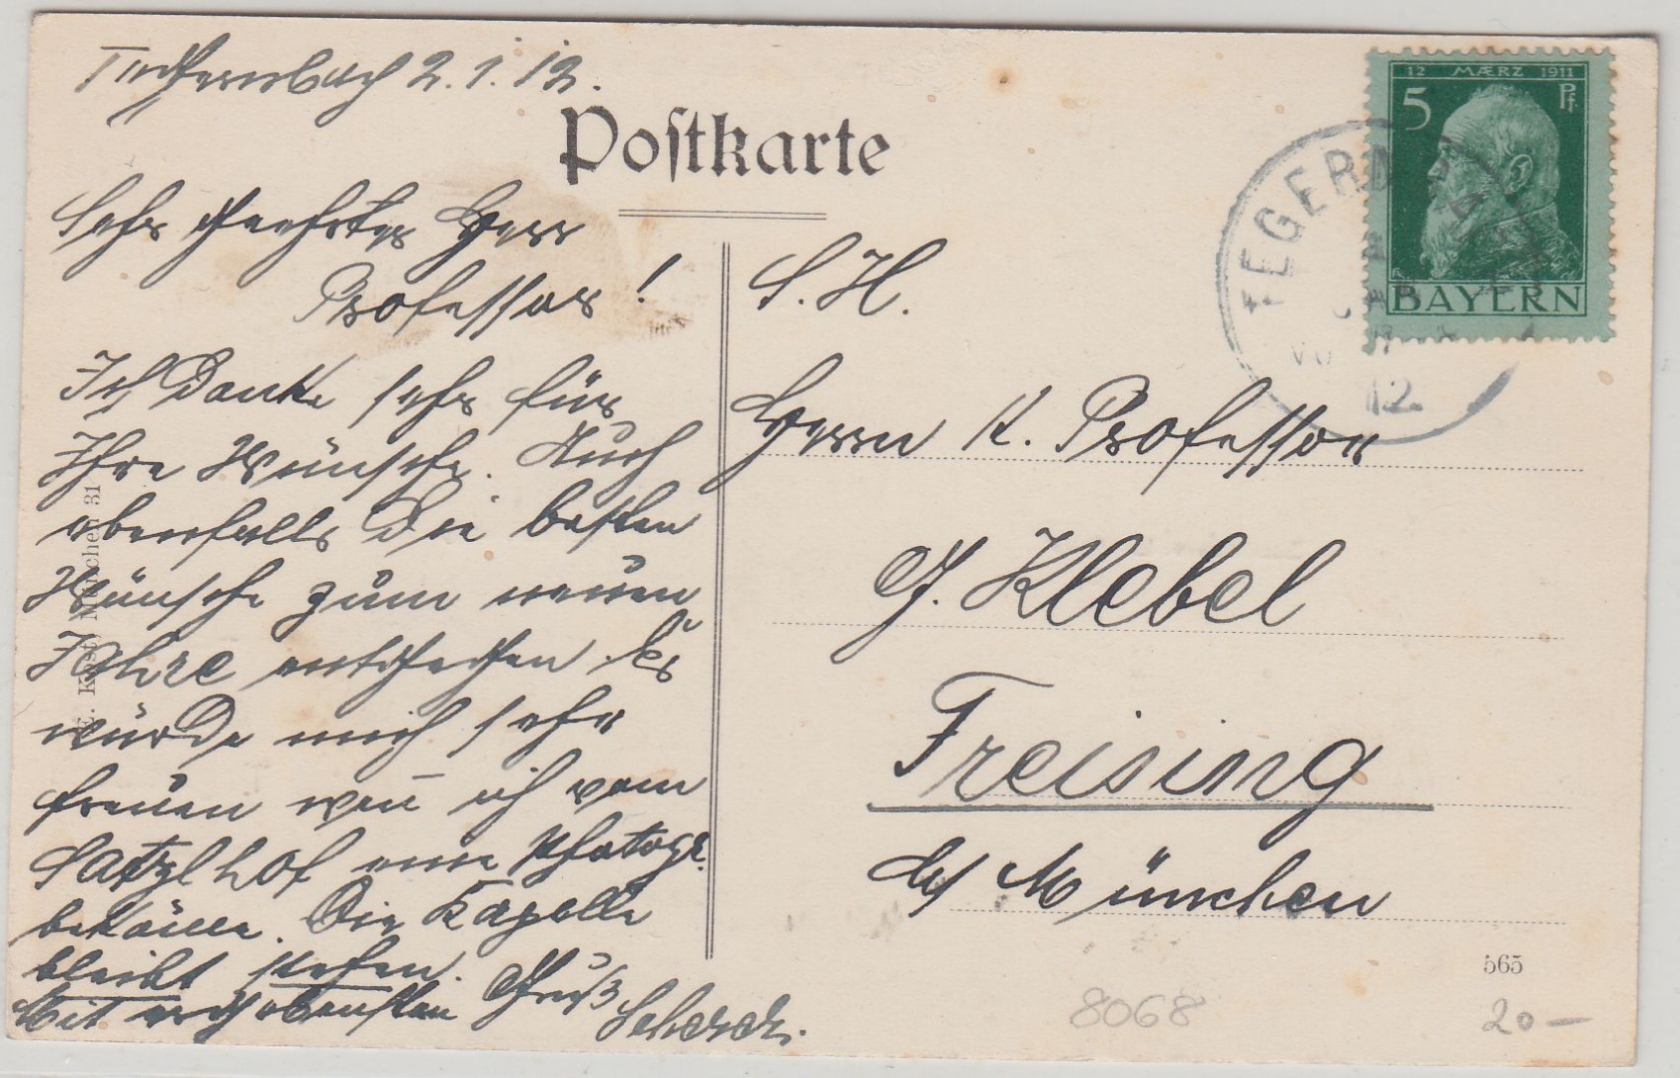 2.1.12.
Postkarte
Sehr geehrter Herr
Professor!
Ich Danke sehr für
Ihre Wünsche. Auch
ebenfalls Die besten
Wünsche zum neuen
Jahre entgegen. Es
würde mich sehr
freuen wen̄ ich vom
Satzlhof eine Photogr.
bekäme. Die Kapelle
bleibt stehen.
Mit ergebensten Gruß
S. H.
Herrn K. Professor
G. Klebel
Freising
b/ München
12 MÆRZ 1911
5 Pf
BAYERN
TEGERN
12.
München 31
565
8068
20 —